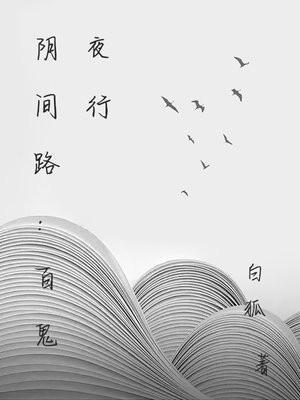 阴间路：百鬼
夜行
白狐
著